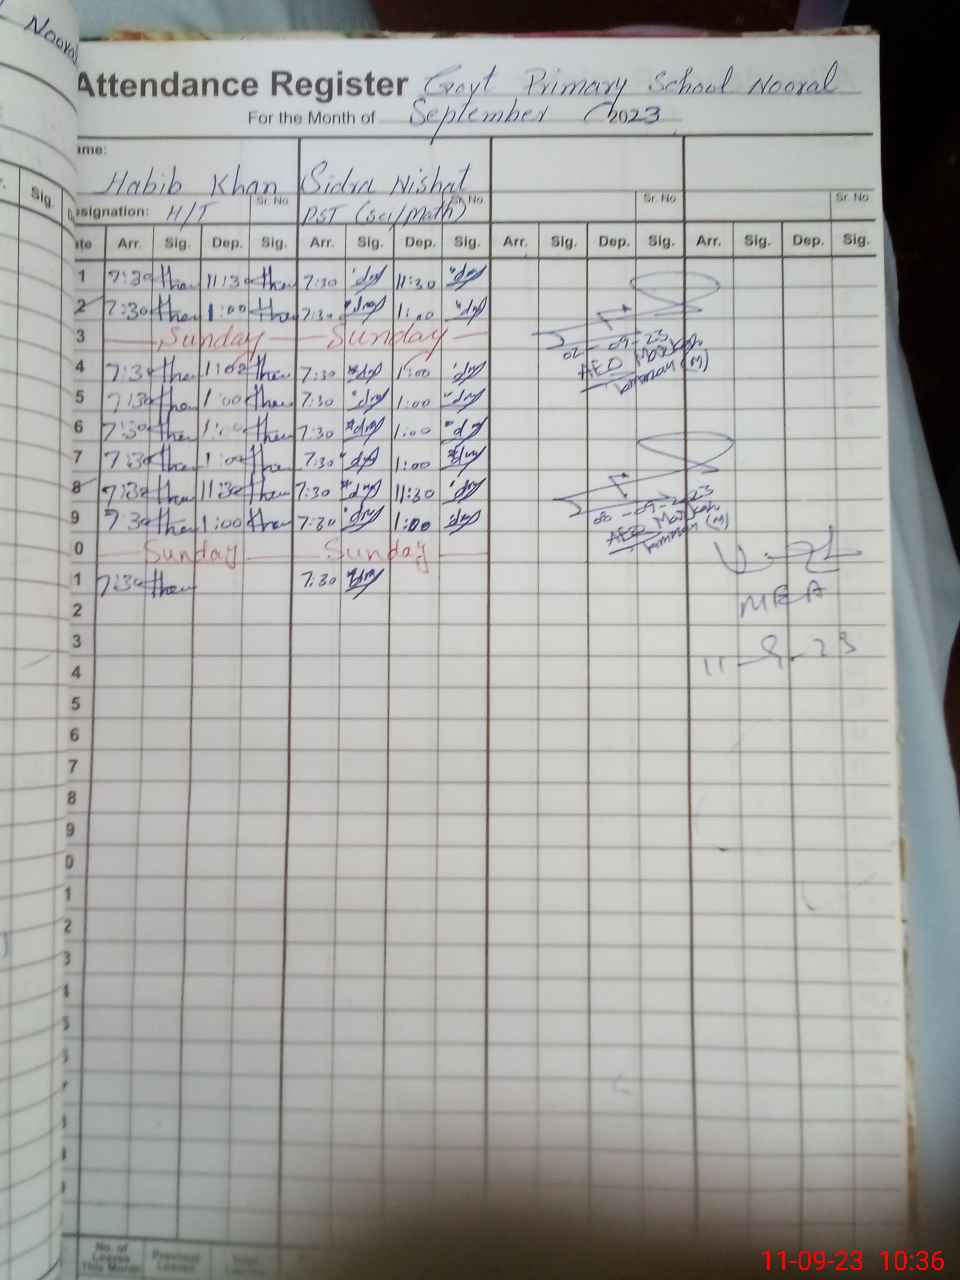 Nooral
Attendance Register Govt Primary School Nooral
For the Month of September 2023
ame:
Habib Khan Sidra Nishat
esignation: H/T Sr. No PST (sci/math) Sr. No Sr. No Sr. No
Sig. ate Arr. Sig. Dep. Sig. Arr. Sig. Dep. Sig. Arr. Sig. Dep. Sig. Arr. Sig. Dep. Sig.
1 7:30 11:30 7:30 11:30
2 7:30 1:00 7:30 1:00
3 Sunday Sunday
02-09-23
4 7:30 1:00 7:30 1:00 AEO Markaz
5 7:30 1:00 7:30 1:00 (M)
6 7:30 1:00 7:30 1:00
7 7:30 1:00 7:30 1:00
8 7:30 11:30 7:30 11:30
08-09-2023
9 7:30 1:00 7:30 1:00 AEO Markaz
(M)
0 Sunday Sunday
1 7:30 7:30
2 MEA
3 11-9-23
4
5
6
7
8
9
0
1
2
3
4
5
No. of Leaves This Month Previous Leaves Total Leaves
11-09-23 10:36